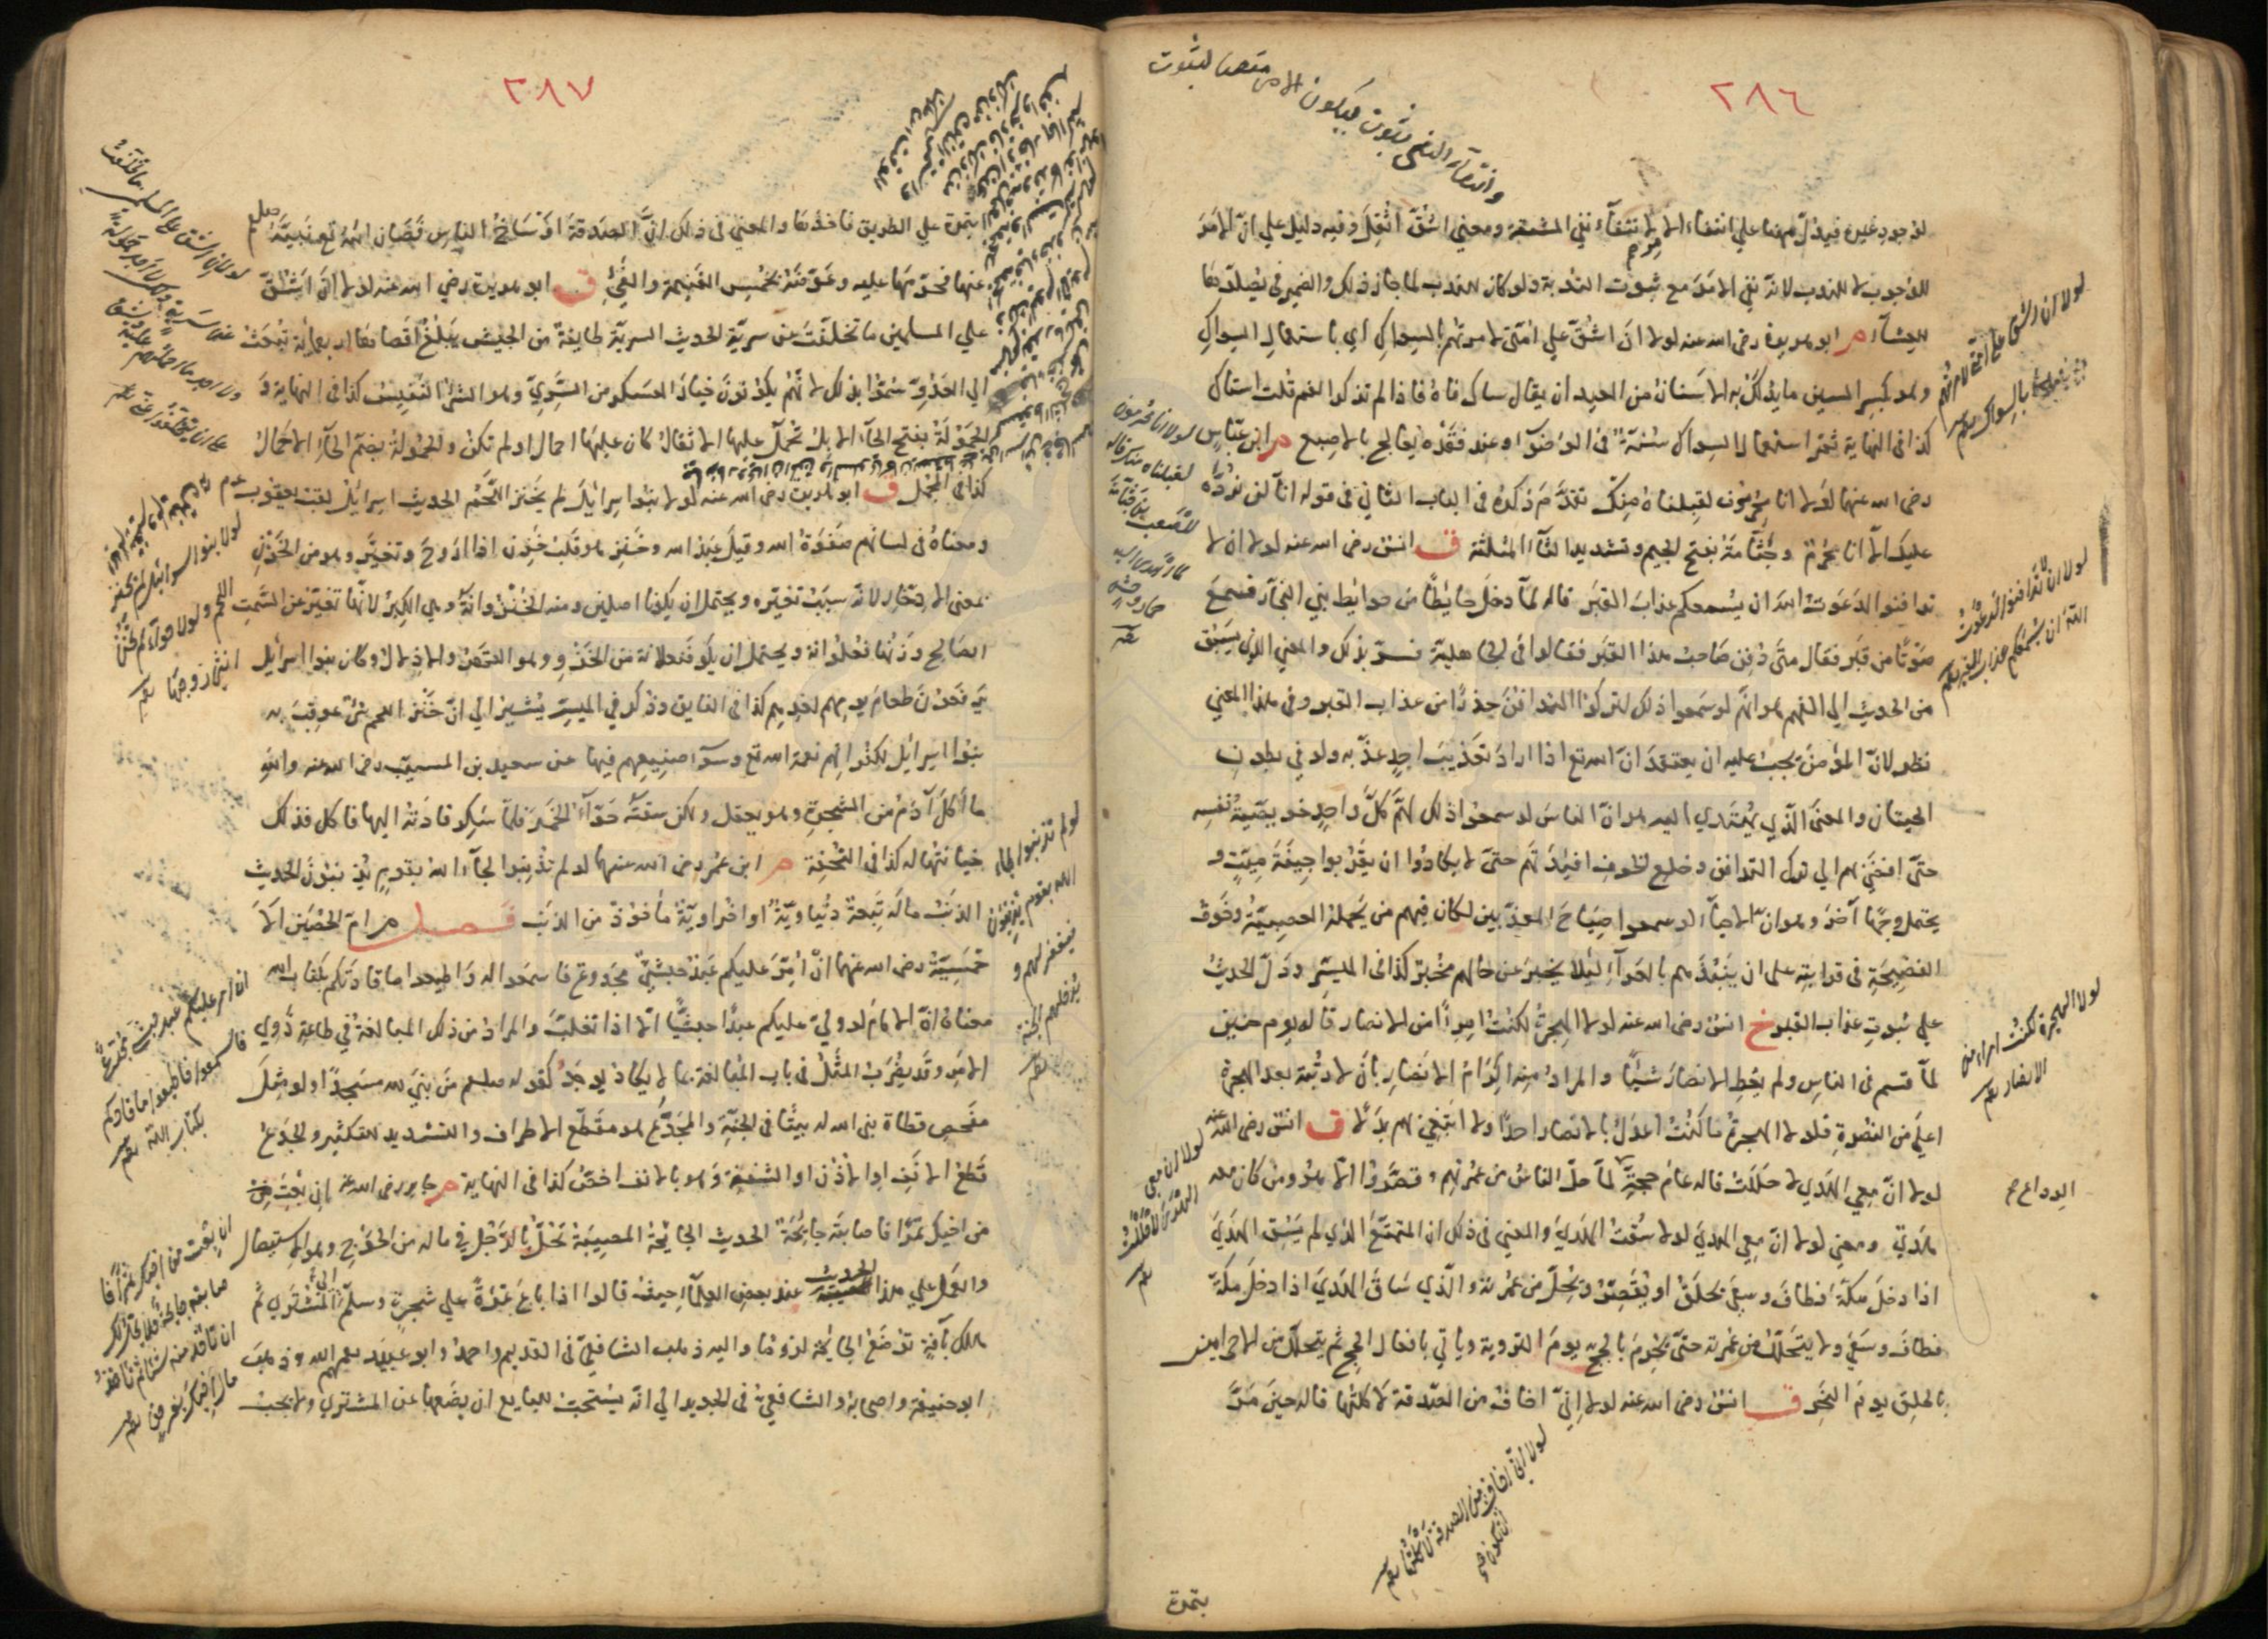 ٢٨٦
لوجود غيره فيدل ههنا على انتفاء الامر لانتفاء نفي المشقة ومعنى اشق اثقل وفيه دليل على ان الامر
للوجوب لا للندب لانه نفي الامر مع ثبوت الندبة ولو كان للندب لما جاز ذلك والضمير في يصلوها
للعشاء م ابو هريرة رضى الله عنه لولا ان اشق على امتى لامرتهم بالسواك اي باستعمال السواك
وهو بكسر السين ما يدلك به الاسنان من العيدان يقال ساك فاه فاذا لم تذكر الفم قلت استاك
كذا فى النهاية ثم استعمال السواك سنة فى الوضوء وعند فقده يعالج بالاصبع م ابن عباس
رضى الله عنهما لولا انا محرمون لقبلناه منك تقدم ذكره فى الباب الثاني فى قوله انا لم نرده
عليك الا انا حرم وجثامة بفتح الجيم وتشديد الثاء المثلثة ق انس رضى الله عنه لولا ان لا
تدافنوا لدعوت الله ان يسمعكم عذاب القبر قاله لما دخل حائطا من حوائط بني النجار فسمع
صوتا من قبر فقال متى دفن صاحب هذا القبر فقالوا فى الجاهلية فسر بذلك والمعني الذي يسبق
من الحديث الى الفهم هو انهم لو سمعوا ذلك لتركوا التدافن حذرا من عذاب القبر وفى هذا المعني
نظر لان المؤمن يجب عليه ان يعتقد ان الله تع اذا اراد تعذيب احد عذبه ولو في بطون
الحيتان والمعنى الذي يهتدي اليه هو ان الناس لو سمعوا ذلك لهم كل واحد خويصة نفسه
حتى افضى بهم الى ترك التدافن وخلع الخوف افئدتهم حتى لا يكادوا ان يقربوا جيفة ميت و
يحتمل وجها آخر وهو ان الاحياء لو سمعوا صياح المعذبين لكان فيهم من يحمله العصبية وخوف
الفضيحة فى قرابته على ان ينبذهم بالعراء لئلا يخبر عن حالهم مخبر كذا فى الميسر ودل الحديث
على ثبوت عذاب القبر خ انس رضى الله عنه لولا الهجرة لكنت امرءا من الانصار قاله يوم حنين
لما قسم فى الناس ولم يعط الانصار شيئا والمراد منه اكرام الانصار بان لا رتبة بعد الهجرة
اعلى من النصرة فلولا الهجرة ما كنت اعدل بالانصار احدا ولا ابتغي بهم بدلا ق انس رضى الله عنه
لولا ان معي الهدي لاحللت قاله عام حجة لما حل الناس من عمرتهم وقصروا الا هو ومن كان معه
هدي ومعنى لولا ان معي الهدي لولا سقت الهدي والمعني فى ذلك ان المتمتع الذي لم يسق الهدي
اذا دخل مكة فطاف وسعى يحلق او يقصر ويحل من عمرته والذي ساق الهدي اذا دخل مكة
فطاف وسعى ولا يتحلل من عمرته حتى يحرم بالحج يوم التروية ويأتي بافعال الحج ثم يتحلل من الاحرامين
بالحلق يوم النحر ق انس رضى الله عنه لولا اني اخاف من الصدقة لاكلتها قاله حين مر
بتمرة
وانتفاء النفي ثبوت فيكون الامر منفيا لثبوت
لولا ان اشق على امتي لامرتهم
بالسواك
لولا انا محرمون
لقبلناه منك قاله
للصعب بن جثامة
لما اهدى اليه
حمار وحش
لولا ان لا تدافنوا لدعوت
الله ان يسمعكم عذاب القبر
لولا الهجرة لكنت امرء من
الانصار
لولا ان معي
الهدي لاحللت
الوداع
لولا اني اخاف من الصدقة لاكلتها
ان تكون من
٢٨٧
بتمرة على الطريق فاخذها والمعني فى ذلك ان الصدقة اوساخ الناس فصان الله تع نبيه صلعم
عنها فحرمها عليه وعوضه بخمس الغنيمة والفئ ق ابو هريرة رضى الله عنه لولا ان اشق
على المسلمين ما تخلفت عن سرية الحديث السرية طايفة من الجيش يبلغ اقصاها اربعمائة تبعث
الى العدو سموا بذلك لانهم يكونون خيار العسكر من السري وهو الشئ النفيس كذا فى النهاية و
الحمولة بفتح الحاء الابل تحمل عليها الاثقال كان عليها احمال او لم تكن والحمولة بضم الحاء الاحمال
كذا فى المجمل ق ابو هريرة رضى الله عنه لولا بنوا اسرائيل لم يخنز اللحم الحديث اسرائيل لقب يعقوب عم
ومعناه فى لسانهم صفوة الله وقيل عبد الله وخنز هو قلب خزن اذا اروح وتغير وهو من الخزن
بمعنى الادخار لانه سبب تغيره ويحتمل ان يكونا اصلين ومنه الخنز وانه وهي الكبر لانها تغير عن السمت
الصالح وزنها فعلوانة ويحتمل ان يكون فنعلانة من الخزو وهو القهر والاذلال وكان بنوا اسرائيل
يرفعون طعام يومهم لغدهم كذا فى الفايق وذكر في الميسر يشير الى ان خنز اللحم شئ عوقب به
بنوا اسرائيل لكفرانهم نعمة الله تع وسوء صنيعهم فيها عن سعيد بن المسيب رضى الله عنه والله
ما اكل آدم من الشجرة وهو يعقل ولكن سقته حواء الخمر فلما سكر قادته اليها فاكل فذلك
خيانتها له كذا فى التحفة م ابن عمر رضى الله عنهما لو لم تذنبوا لجاء الله بقوم يذنبون الحديث
الذنب ما له تبعة دنياوية او اخراوية مأخوذ من الذنب فصل م ام الحصين الا
حمسية رضى الله عنها ان امر عليكم عبد حبشي مجدوع فاسمعوا له واطيعوا ما قادكم بكتاب الله
معناه ان الامام لو ولى عليكم عبدا حبشيا الا اذا تغلب والمراد من ذلك المبالغة في طاعة ذوي
الامر وقد يضرب المثل فى باب المبالغة بما لا يكاد يوجد كقوله صلعم من بنى لله مسجدا ولو مثل
مفحص قطاة بنى الله له بيتا فى الجنة والمجدع هو مقطع الاطراف والتشديد للتكثير والجدع
قطع الانف او الاذن او الشفة وهو بالانف اخص كذا فى النهاية م جابر رضى الله عنه ان بعت من
من اخيك تمرا فاصابته جايحة الحديث الجايحة المصيبة تحل بالرجل في ماله من الجوح وهو الاستيصال
والعمل على هذا الحديث عند بعض العلماء حيث قالوا اذا باع ثمرة على شجرة وسلم الى المشتري ثم
هلك بآفة توضع الجايحة لزوما واليه ذهب الشافعي فى القديم واحمد وابو عبيد رحمهم الله وذهب
ابو حنيفة واصحابه والشافعي فى الجديد الى انه يستحب للبايع ان يضعها عن المشتري ولا يجب
لولا ان اشق على المسلمين ما تخلفت
لولا بنو اسرائيل لم يخنز
اللحم ولولا حواء لم تخن
انثى زوجها
لو لم تذنبوا لجاء
الله بقوم يذنبون
فيغفر لهم و
يدخلهم الجنة
ان امر عليكم عبد حبشي مجدع
فاسمعوا واطيعوا ما قادكم
بكتاب الله
ان بعت من اخيك تمرا فا
صابته جايحة فلا يحل لك
ان تاخذ منه شيئا بم تاخذ
مال اخيك بغير حق